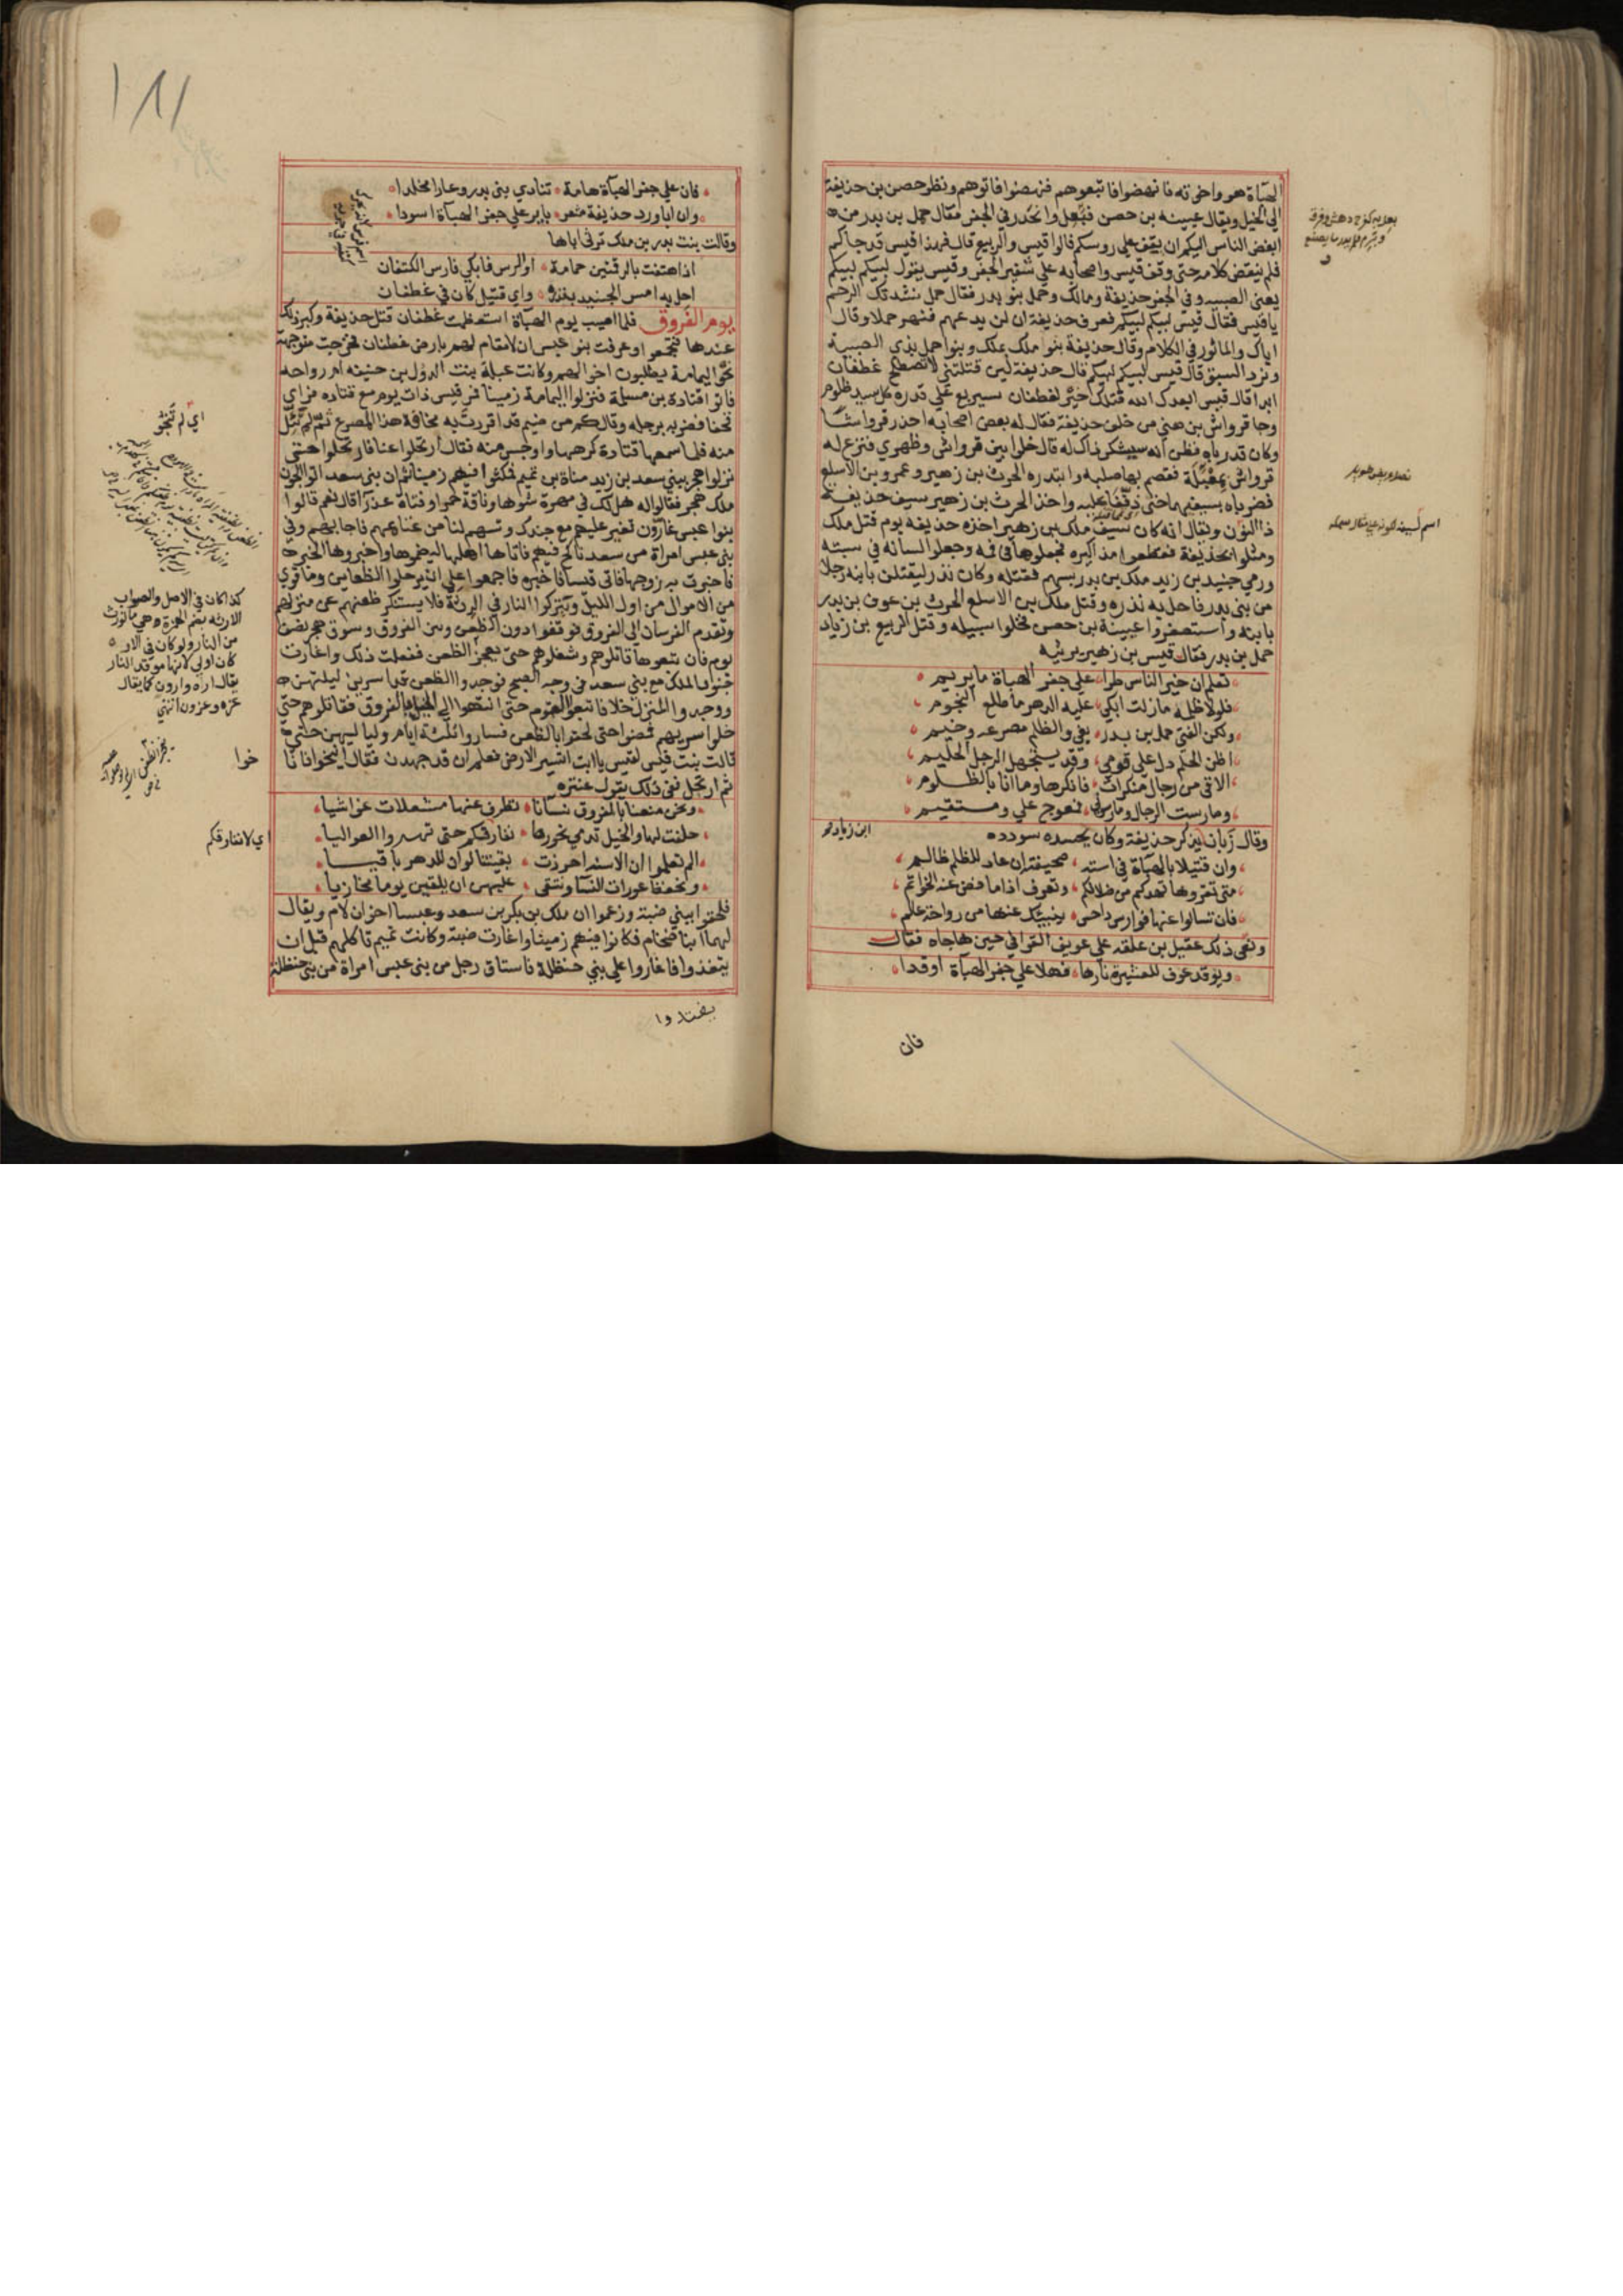 الهبآة هو واخوته فانهضوا فاتبعوهم فنهضوا فاتوهم ونظر حصن بن حذيفة
الي الخيل ويقال عيينه بن حصن فبعل وانحدر في الجفر فقال حمل بن بدر من ه
ابغض الناس اليكم ان يقف علي روسكم قالوا قيس والربيع قال فهذا قيس قد جاكم
فلم ينقض كلامه حتي وقف قيس واصحابه علي شفير الجفر وقيس يقول لبيكم لبيكم
يعني الصبيه وفي الجفر حذيفة ومالك وحمل بنو بدر فقال حمل ننشدتك الرحم
ياقيس فقال قيس لبيكم لبيكم فعرف حذيفة ان لن يدعهم فنهر حملا وقال
اياك والماثور في الكلام وقال حذيفة بنوا ملك بملك وبنوا حمل بذي الصبية
ونرد السبق قال قيس لبيكم لبيكم قال حذيفة لين قتلتني لا تصطلح غطفان
ابدا قال قيس ابعدك الله قتلك خير لغطفان سيربع علي قدره كل سيد ظلوم
وجا قرواش بن هني من خلف حذيفة فقال له بعض اصحابه احذر قرواشا
وكان قد رباه فظن انه سيشكر ذاك له قال خلوا بين قرواش وظهري فنزع له
قرواش بمعبلة فقصم بها صلبه وابتدره الحرث بن زهير وعمرو بن الاسلع
فضرباه بسيفيهما حتي ذففا عليه واخذ الحرث بن زهير سيف حذيفة
ذا النون ويقال انه كان سيف ملك بن زهير اخذه حذيفه يوم قتل ملك
ومثلوا بحذيفة فقطعوا مذاكيره فجعلوها في فيه وجعلوا لسانه في سبته
ورمي جنيدب بن زيد ملك بن بدر بسهم فقتله وكان نذر ليقتلن بابنه رجلا
من بني بدر فاحل به نذره وقتل ملك بن الاسلع الحرث بن عوف بن بدر
بابنه واستصغروا عيينة بن حصن فخلوا سبيله وقتل الربيع بن زياد
حمل بن بدر فقال قيس بن زهير يرثيه
تعلم ان خير الناس طرا علي جفر الهباة ما يريم
فلولا ظلمه مازلت ابكي عليه الدهر ما طلع النجوم
ولكن الفتي حمل بن بدر بغي والظلم مصرعه وخيم
اظن الحلم دل علي قومي وقد يستجهل الرجل الحليم
الاقي من رجال منكرات فانكرها وما انا بالظلوم
ومارست الرجال ومارسوني فمعوج علي ومستقيم
وقال زبان يذكر حذيفة وكان يحسده سودده
ابن زياد
وان قتيلا بالهباة في استه صحيفته ان عاد للظلم ظالم
متي تقروها تهدكم من ضلالكم وتعرف اذا ما فض عنه الخواتم
فان تسالوا عنها فوارس داحس ينبيك عنها من رواحة عالم
ونعي ذلك عقيل بن علفه علي عويف القوافي حين هاجاه فقال
ويوقد عوف للعشيرة نارها فهلا علي جفر الهباة اوقدا
فان
فان علي جفر الهبآة هامة تنادي بني بدر وعارا مخلدا
وان ابا ورد حذيفة مثفر باير علي جفر الهباة اسودا
وقالت بنت بدر بن ملك ترثي اباها
اذا هتفت بالرقتين حمامة او الرس فابكي فارس الكتفان
احل به امس الجنيدب نذره واي قتيل كان في غطفان
يوم الفروق فلما اصيب يوم الهبآة استعظمت غطفان قتل حذيفة وكبر ذلك
عندها فتجمعوا وعرفت بنو عبس ان لا مقام لهم بارض غطفان فخرجت متوجهة
نحو اليمامة يطلبون اخوالهم وكانت عبلة بنت الدول بن حنيفه ام رواحه
فاتوا قتادة بن مسلمة فنزلوا اليمامة زمينا فمر قيس ذات يوم مع قتاده فراي
قحفا فضربه برجله وقال كم من ضيم قد اقررت به مخافة هذا المصرع ثم لم تئل
منه فلما سمعها قتادة كرهها واوجس منه فقال ارتحلوا عنا فارتحلوا حتي
نزلوا هجر ببني سعد بن زيد مناة بن تميم فمكثوا فيهم زمينا ثم ان بني سعد اتوا الجون
ملك هجر فقالوا له هل لك في مهرة شوها وناقة حمرا وفتاة عذرآ قال نعم قالوا
بنوا عبس غارون تغير عليهم مع جندك وتسهم لنا من غنائمهم فاجابهم وفي
بني عبس امراة من سعد ناكح فيهم فاتاها اهلها ليضموها واخبروها الخبر
فاخبرت به زوجها فاتي قيسا فاخبره فاجمعوا علي ان يرحلوا الظعاين وما قوي
من الاموال من اول الليل ويتركوا النار في الرثة فلا يستنكر ظعنهم عن منزلهم
وتقدم الفرسان الي الفروق فوقفوا دون الظعن وبين الفروق وسوق هجر نصف
يوم فان تبعوها قاتلوهم وشغلوهم حتي يعجز الظعن ففعلت ذلك واغارت
جنود الملك مع بني سعد في وجه الصبح فوجدوا الظعن قد اسرين ليلتهن
ووجدوا المنزل خلا فاتبعوا القوم حتي انتهوا الي الخيل بالفروق فقاتلوهم حتي
خلوا سربهم فمضوا حتي لحقوا بالظعن فساروا ثلثة ايام ولياليهن حتي
قالت بنت قيس لقيس يا ابت اتسير الارض فعلم ان قد جهدن فقال انيخوا فاناخوا
ثم ارتحل ففي ذلك يقول عنتره
ونحن منعنا بالفروق نسآنا نطرف عنها مشعلات غواشيا
حلفت لها والخيل تدمي نحورها نفارقكم حتي تهروا العواليا
الم تعلموا ان الاسنه احرزت بقيتنا لو ان للدهر باقيا
ونحفظ عورات النسآ ونتقي عليهن ان يلقين يوما مخازيا
فلحقوا ببني ضبة وزعموا ان ملك بن بكر بن سعد وعبسا اخوان لام ويقال
لهما ابنا ضخام فكانوا فيهم زمينا واغارت ضبة وكانت تميم تاكلهم قبل ان
يتغذوا فاغاروا علي بني حنظلة فاستاق رجل من بني عبس امراة من بني حنظلة
اي لم تنجو
كذا كان في الاصل والصواب
الارثه بضم الهمزة وهي ما تورث
من النار ولو كان في الار ه
كان اولي لانها موقد النار
يقال اره وارون كما يقال
عزه وعزون انتهي
خوا
اي لا نفارقكم